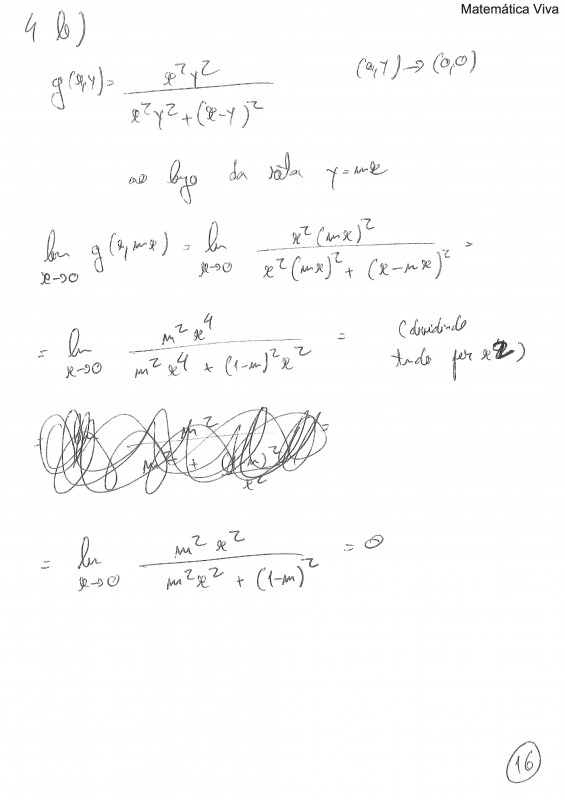 Matemática Viva
4 b)
g(x,y) = x²y² / (x²y² + (x-y)²)    (x,y) → (0,0)
ao longo da reta y = mx
lim x→0 g(x, mx) = lim x→0 x²(mx)² / (x²(mx)² + (x-mx)²) =
= lim x→0 m²x⁴ / (m²x⁴ + (1-m)²x²) = (dividindo
tudo por x²)
= lim x→0 m²x² / (m²x² + (1-m)²) = 0
16